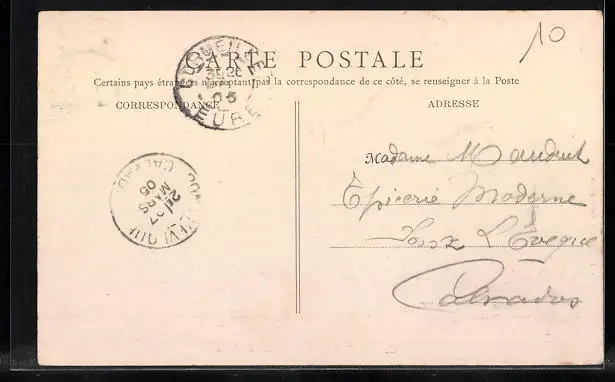 10
CARTE POSTALE
Certains pays étrangers n'acceptant pas la correspondance de ce côté, se renseigner à la Poste
CORRESPONDANCE
ADRESSE
CORMEILLES
3E 26
05
EURE
Madame Mauduit
Épicerie Moderne
Pont L'Évêque
Calvados
PONT-L'EVEQUE
2E 27
MARS
05
CALVADOS